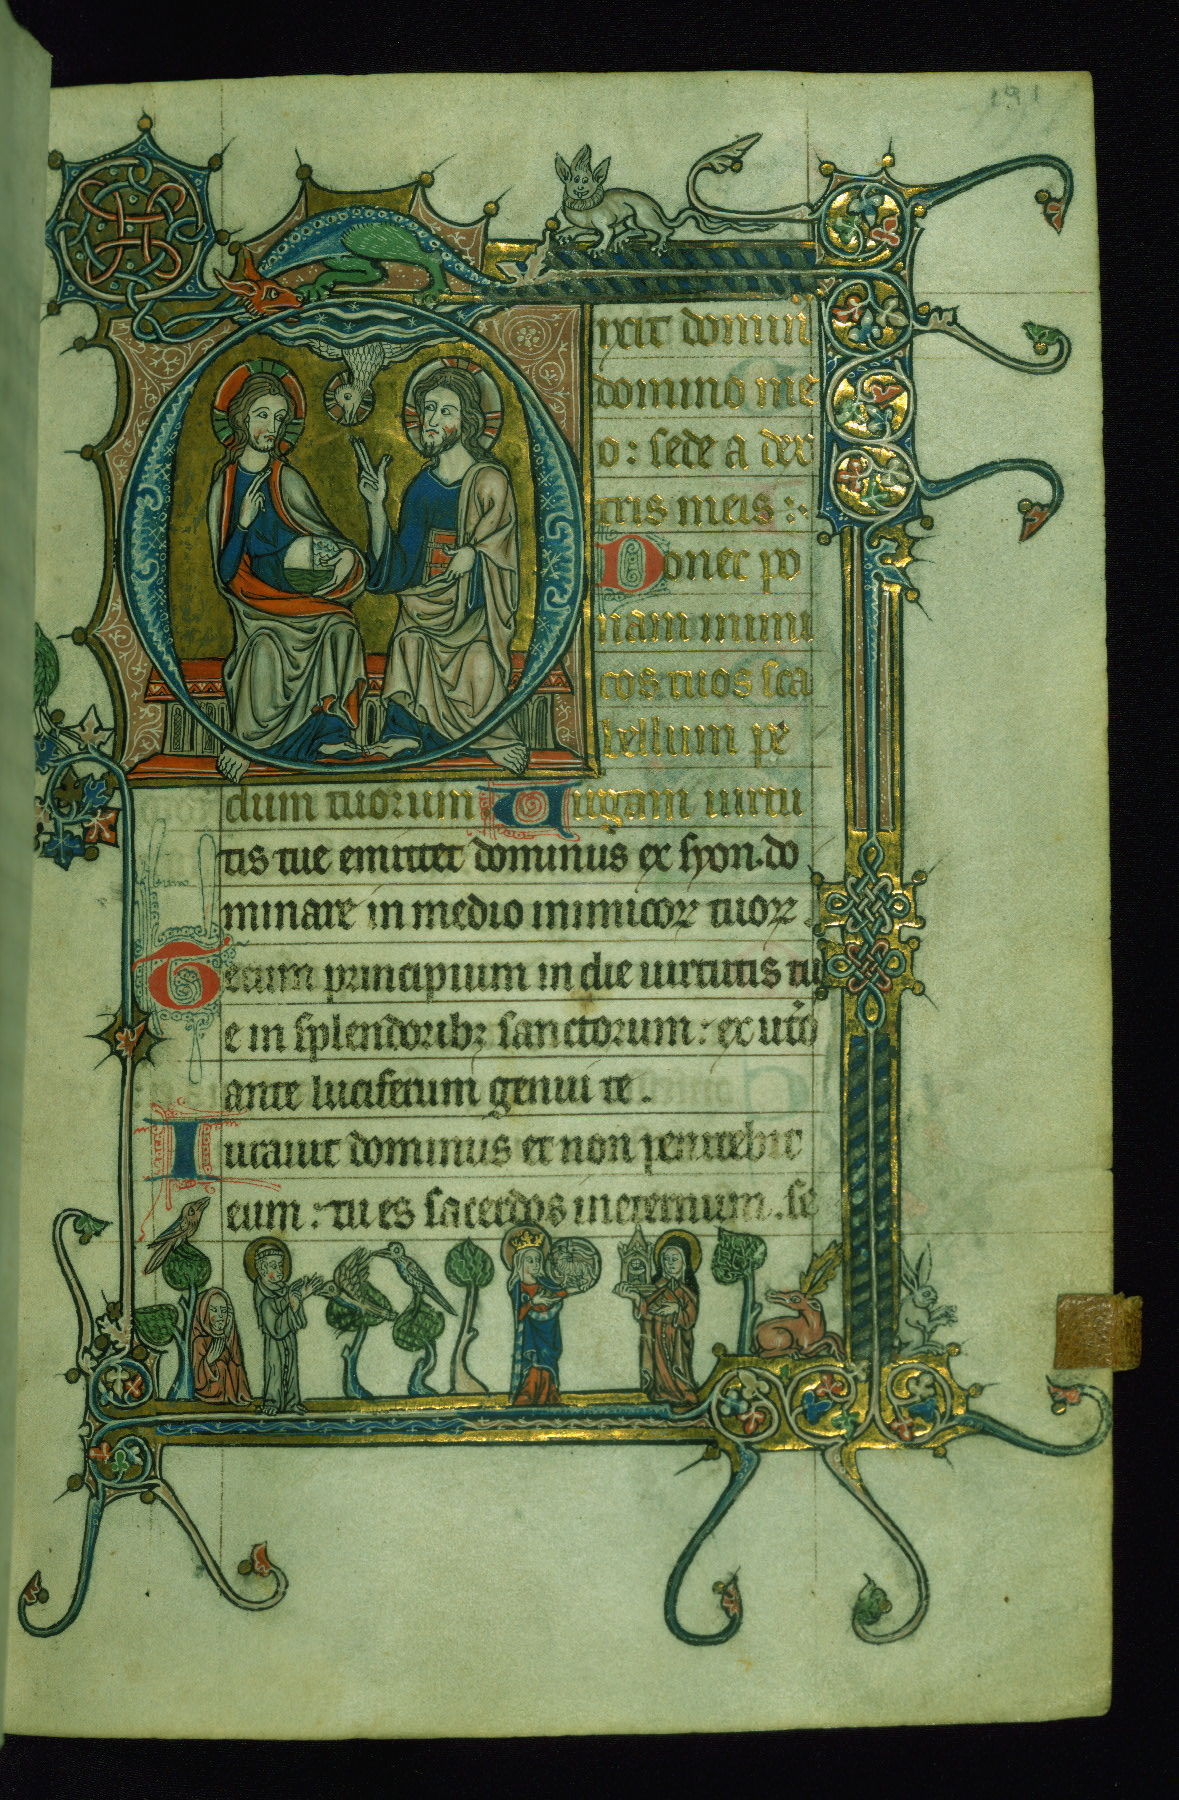 191
Dixit domin
domino me
o : sede a dex
tris meis :.
Donec po
nam inimi
cos tuos sca
bellum pe
dum tuorum Uirgam uirtu
tis tue emittet dominus ex syon . do
minare in medio inimicoꝝ tuoꝝ .
Tecum principium in die uirtutis tu
e in splendoribꝫ sanctorum : ex utō
ante luciferum genui te .
Iurauit dominus et non penitebit
eum : tu es sacerdos in eternum . se